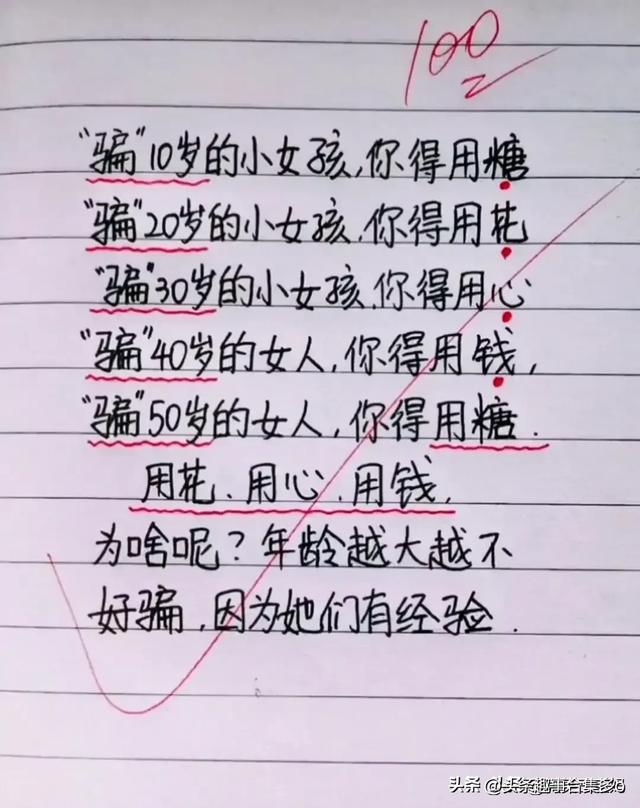 100
"骗"10岁的小女孩,你得用糖
"骗"20岁的小女孩,你得用花
"骗"30岁的小女孩,你得用心
"骗"40岁的女人,你得用钱,
"骗"50岁的女人,你得用糖.
用花、用心、用钱,
为啥呢?年龄越大越不
好骗,因为她们有经验.
头条